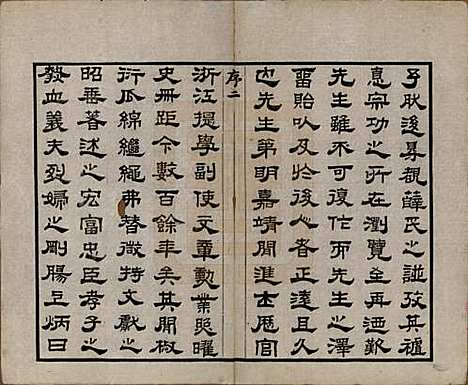 予耿後旱覩薛氏之譜攷其禋
意宗功之所在瀏覽至再洒歎
先生雖不可復作而先生之澤
畱貽以及於後人者正遠且久
也先生第明嘉靖閒進士歷官
序二
浙江提學副使文章勳業照曜
史冊距今數百餘年矣其開椒
衍瓜綿繼繩弗替徵持文獻之
昭垂著述之宏富忠臣孝子之
發血義夫烈婦之剛腸足炳日